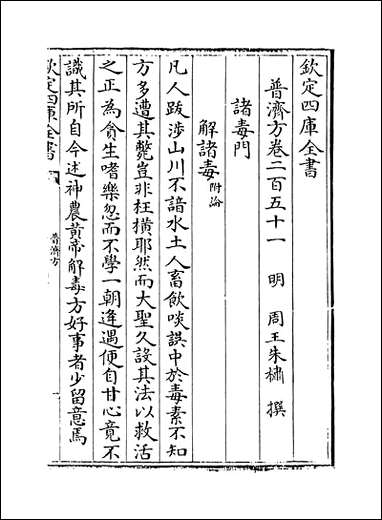 欽定四庫全書
普濟方卷二百五十一　明　周王朱橚　撰
諸毒門
解諸毒附論
凡人跋涉山川不諳水土人畜飲啖誤中於毒素不知
方多遭其斃豈非枉橫耶然而大聖久設其法以救活
之正為貪生嗜樂忽而不學一朝逢遇便自甘心竟不
識其所自今述神農黃帝解毒方好事者少留意焉
欽定四庫全書
普濟方